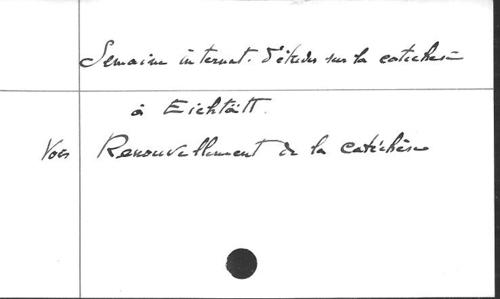 Semaine internat. d'études sur la catéchèse
à Eichtätt.
Voir Renouvellement de la catéchèse